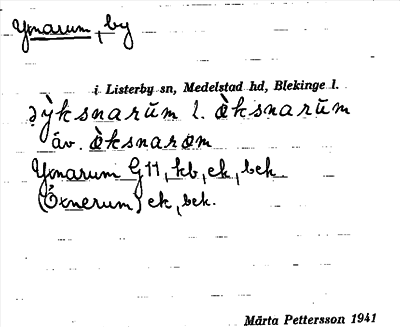 Yxnarum, by
i Listerby sn, Medelstad hd, Blekinge l.
ə̀ỳksnarŭm l. ø̀ksnarŭm
äv. ø̀ksnarøm
Yxnarum G11, kb, ek, bek
(Öxnerum) ek, bek.
Märta Pettersson 1941